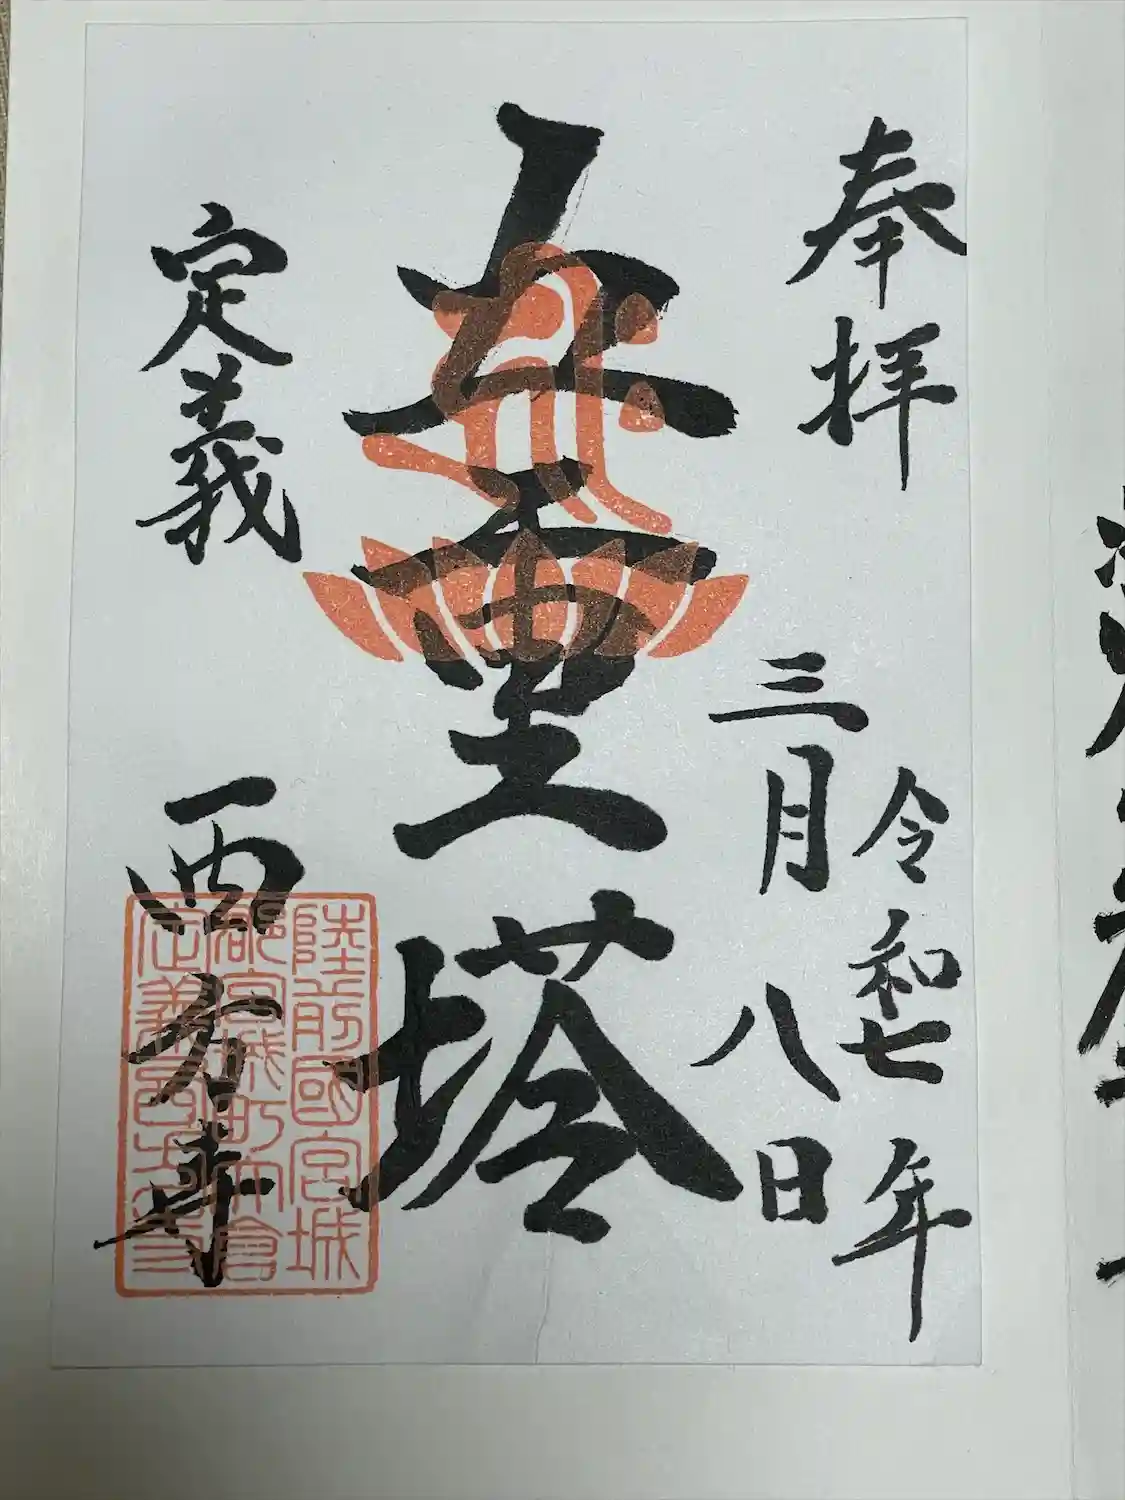 奉拝
令和七年
三月八日
五重塔
定義
西方寺
陸前國宮城
郡宮城町大倉
定義西方寺